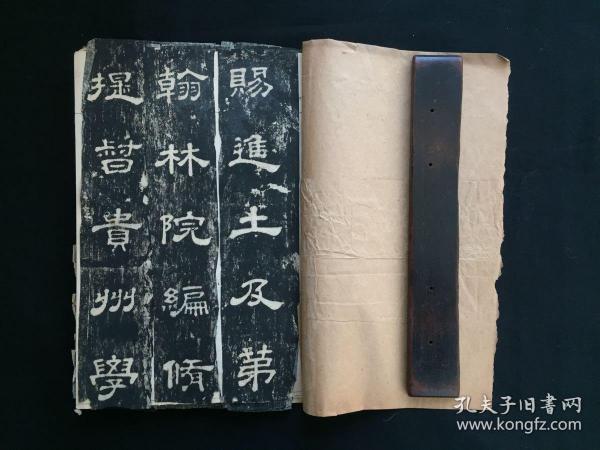 賜進士及第
翰林院編脩
提督貴州學
孔夫子旧書网
www.kongfz.com